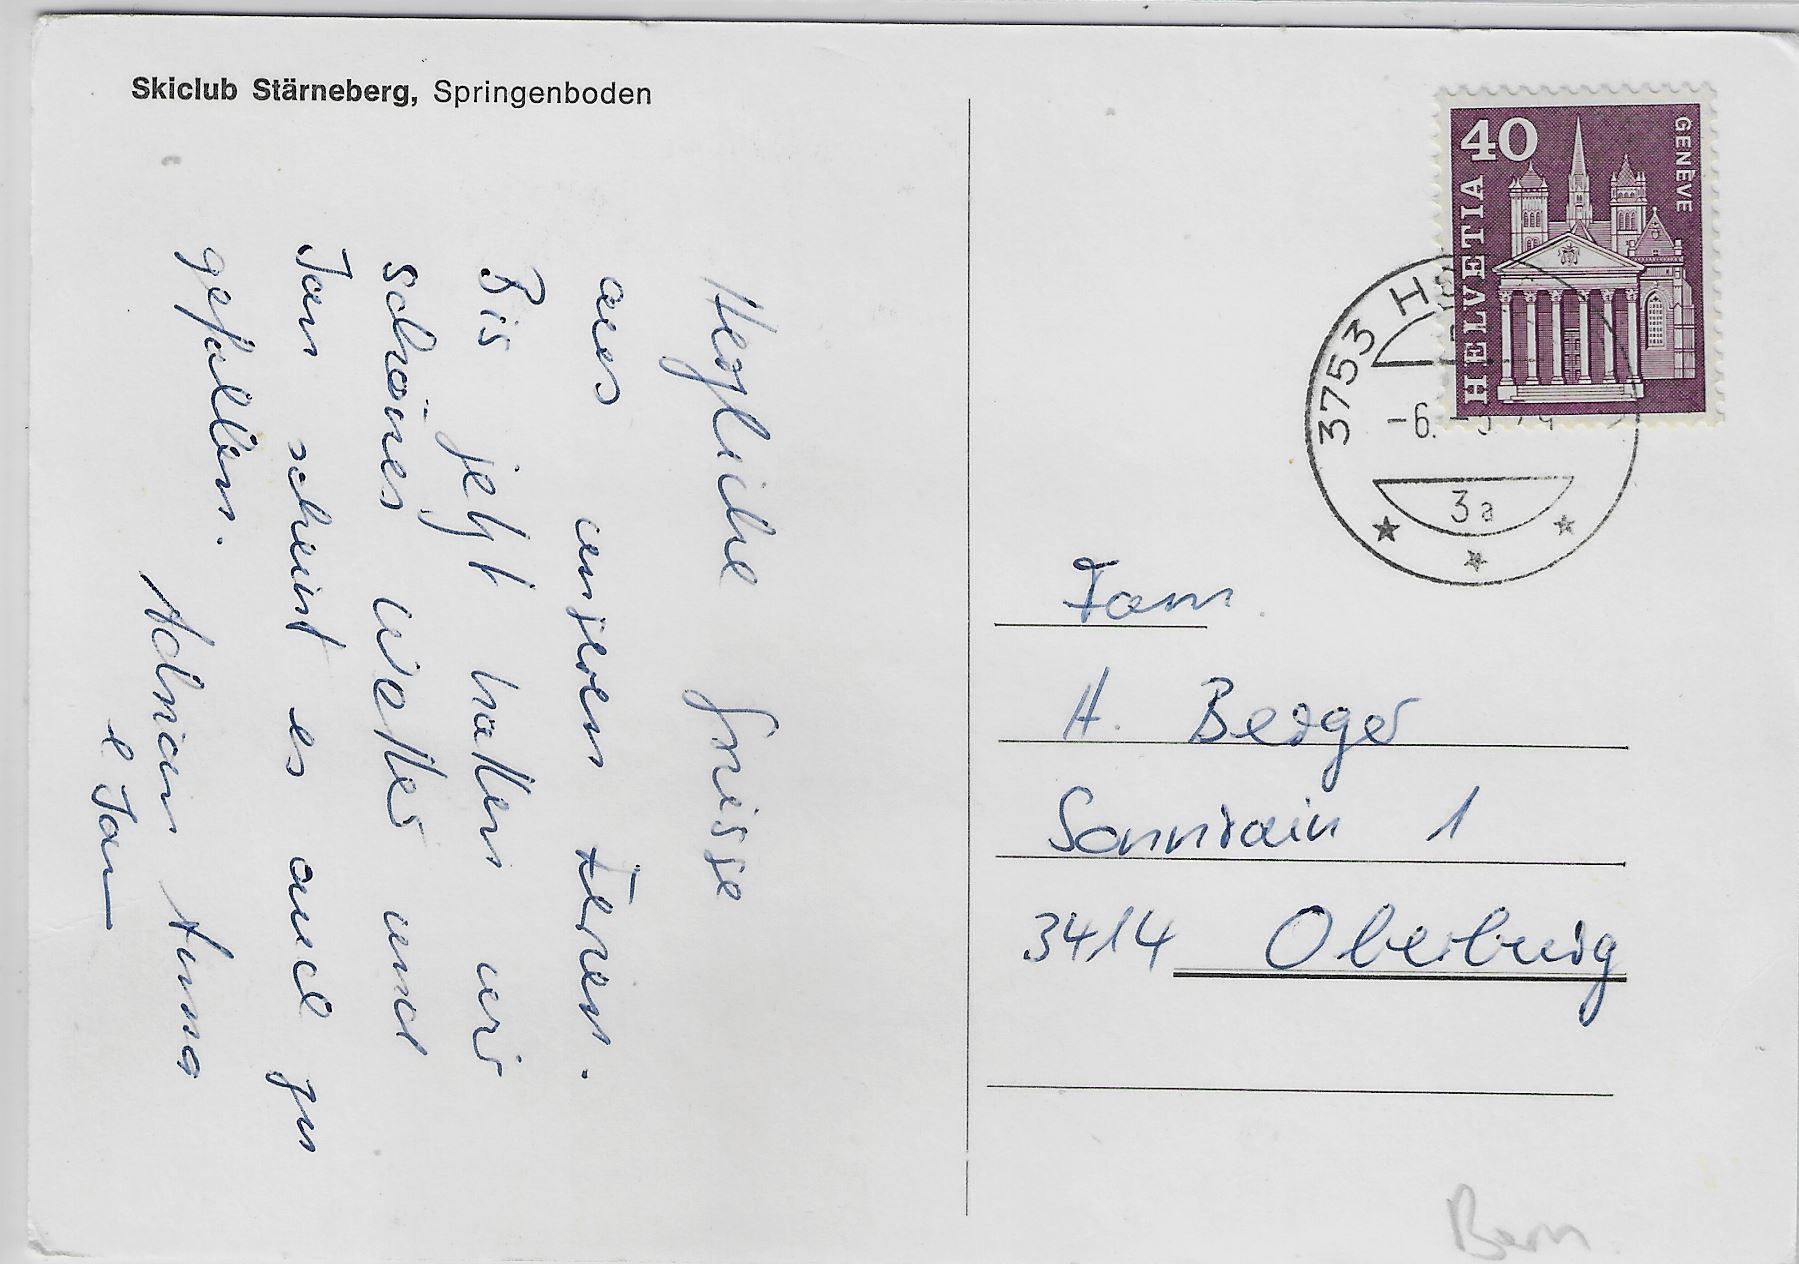 Skiclub Stärneberg, Springenboden
Herzliche Grüsse
aus unseren Ferien.
Bis jetzt hatten wir
schönes Wetter und
Jan scheint es auch zu
gefallen.
Adrian Anna
& Jan
40
HELVETIA
GENÈVE
3753
-6.
3a
Fam.
H. Berger
Sonnrain 1
3414 Oberburg
Bern